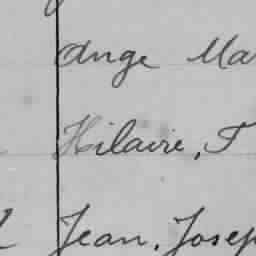 Ange Ma
Hilaire, T
Jean, Josep